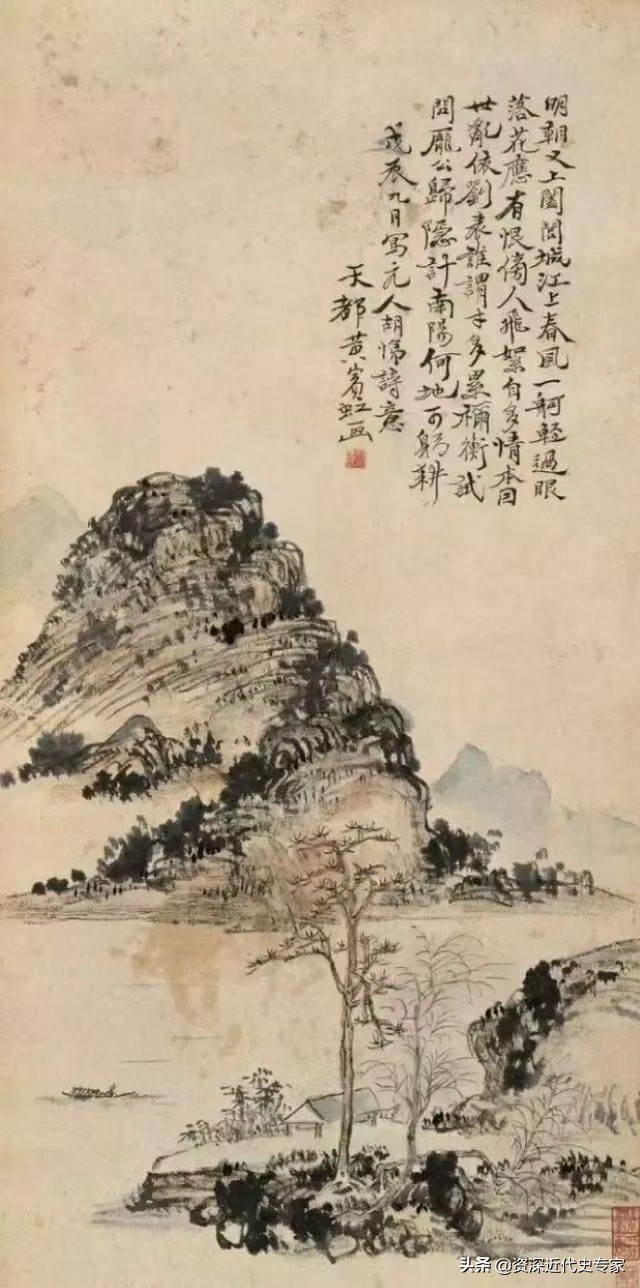 明朝又上闔閭城江上春風一舸輕過眼
落花應有恨傍人飛絮自多情本因
世亂依劉表誰謂才多累禰衡試
問龐公歸隱計南陽何地可躬耕
戊辰九日寫元人胡悌詩意
天都黃賓虹画
头条 @资深近代史专家